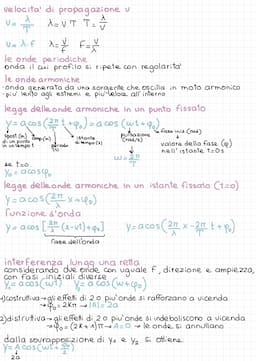 velocita' di propagazione v
v = λ/T λ = v T T = λ/v
v = λ·f λ = v/f F = v/λ
le onde periodiche
onda il cui profilo si ripete con regolarita'
le onde armoniche
-onda generata da una sorgente che oscilla in moto armonico
-piu' lento agli estremi e piu' veloce all'interno
legge delle onde armoniche in un punto fissato
y = a cos(2π/T t + φ₀) = a cos(ωt + φ₀)
spost (m) di un punto in un tempo t
amp (m)
periodo (s)
istante di tempo (s)
pulsazione (rad/s)
ω = 2π/T
fase iniz (rad)
valore della fase (φ) nell'istante t=0s
se t=0
y₀ = a cos φ₀
legge delle onde armoniche in un istante fissato (t=0)
y = a cos(2π/λ x + φ₀)
funzione d'onda
y = a cos[2π/λ (x-vt) + φ₀] y = a cos(2π/λ x - 2π/T t + φ₀)
fase dell'onda
interferenza lungo una retta
considerando due onde con uguale f, direzione e ampiezza,
con fasi iniziali diverse
y₁ = a cos(ωt) y₂ = a cos(ωt + φ₀)
1) costruttiva → gli effetti di 2 o piu' onde si rafforzano a vicenda
→ φ₀ = 2kπ → |A| = 2a
2) distruttiva → gli effetti di 2 o piu' onde si indeboliscono a vicenda
→ φ₀ = (2k+1)π → A = 0 → le onde si annullano
dalla sovrapposizione di y₁ e y₂ si ottiene
y = A cos(ωt + φ₀/2)
2a